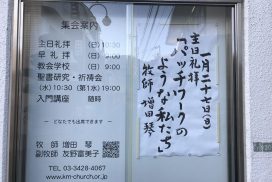 集会案内
主日礼拝 (日) 10:30
早礼拝 (日) 9:00
教会学校 (日) 9:00
聖書研究・祈祷会
(水) 10:30 (第1水) 19:00
入門講座 随時
―どなたでも出席できます―
牧師 増田 琴
副牧師 友野富美子
TEL 03-3428-4067
www.km-church.or.jp
月二十七日(日)
主日礼拝
「パッチワークの
ような私たち」
牧師 増田 琴